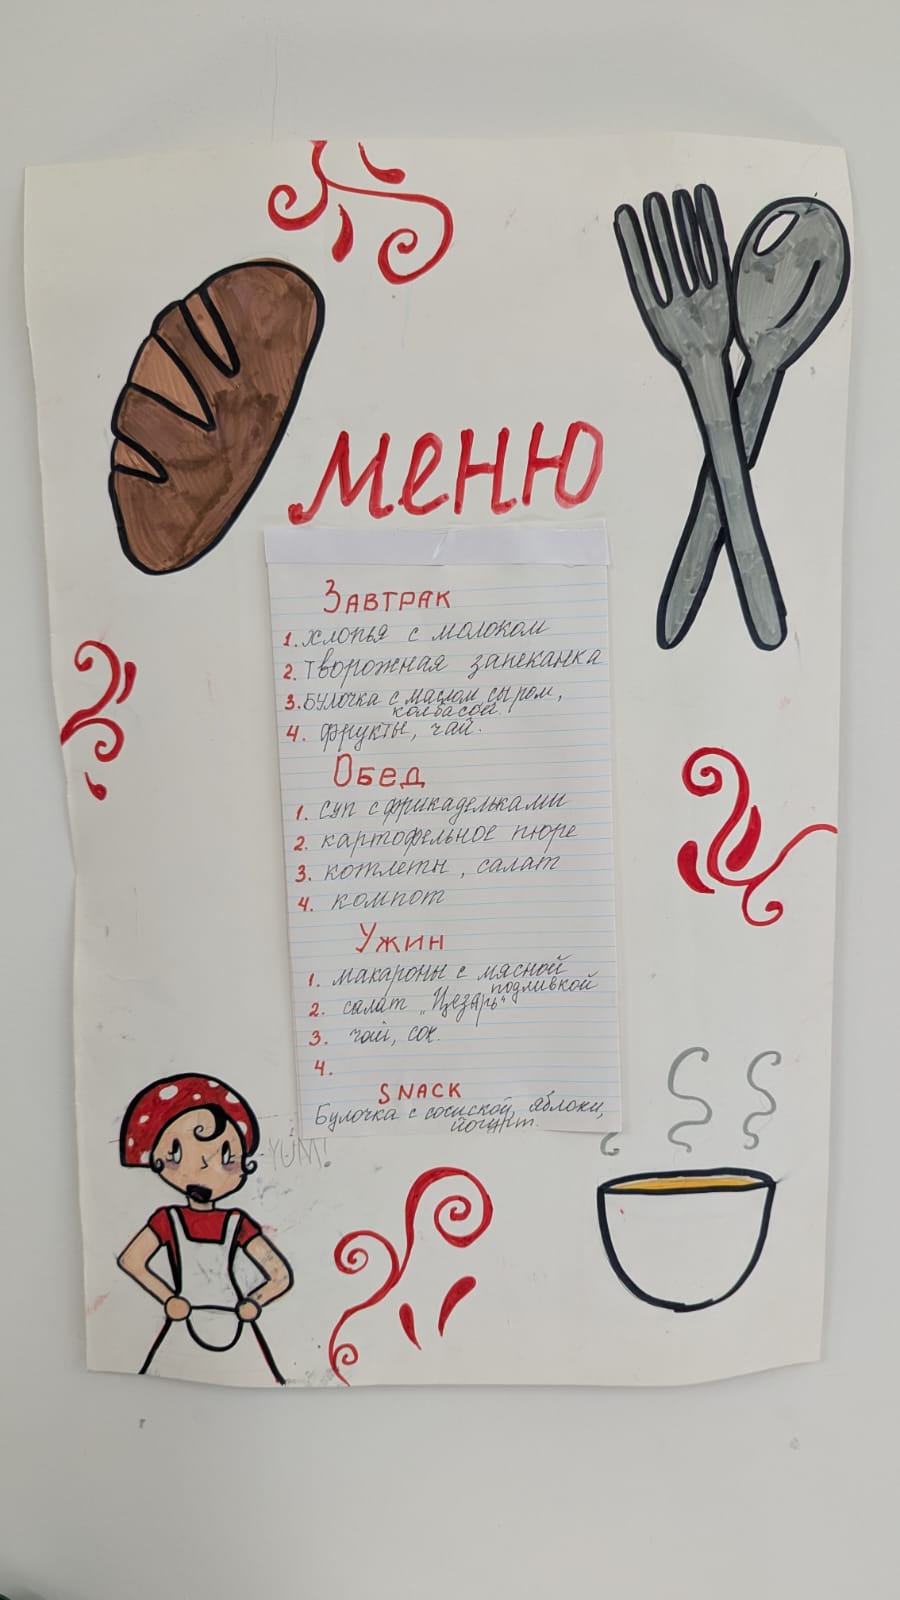 меню
Завтрак
1. хлопья с молоком
2. творожная запеканка
3. булочка с маслом сыром,
колбасой.
4. фрукты, чай.
Обед
1. суп с фрикадельками
2. картофельное пюре
3. котлеты, салат
4. компот
Ужин
1. макароны с мясной
подливкой
2. салат „Цезарь"
3. чай, сок.
4.
SNACK
Булочка с сосиской, яблоки,
йогурт.
YUM!